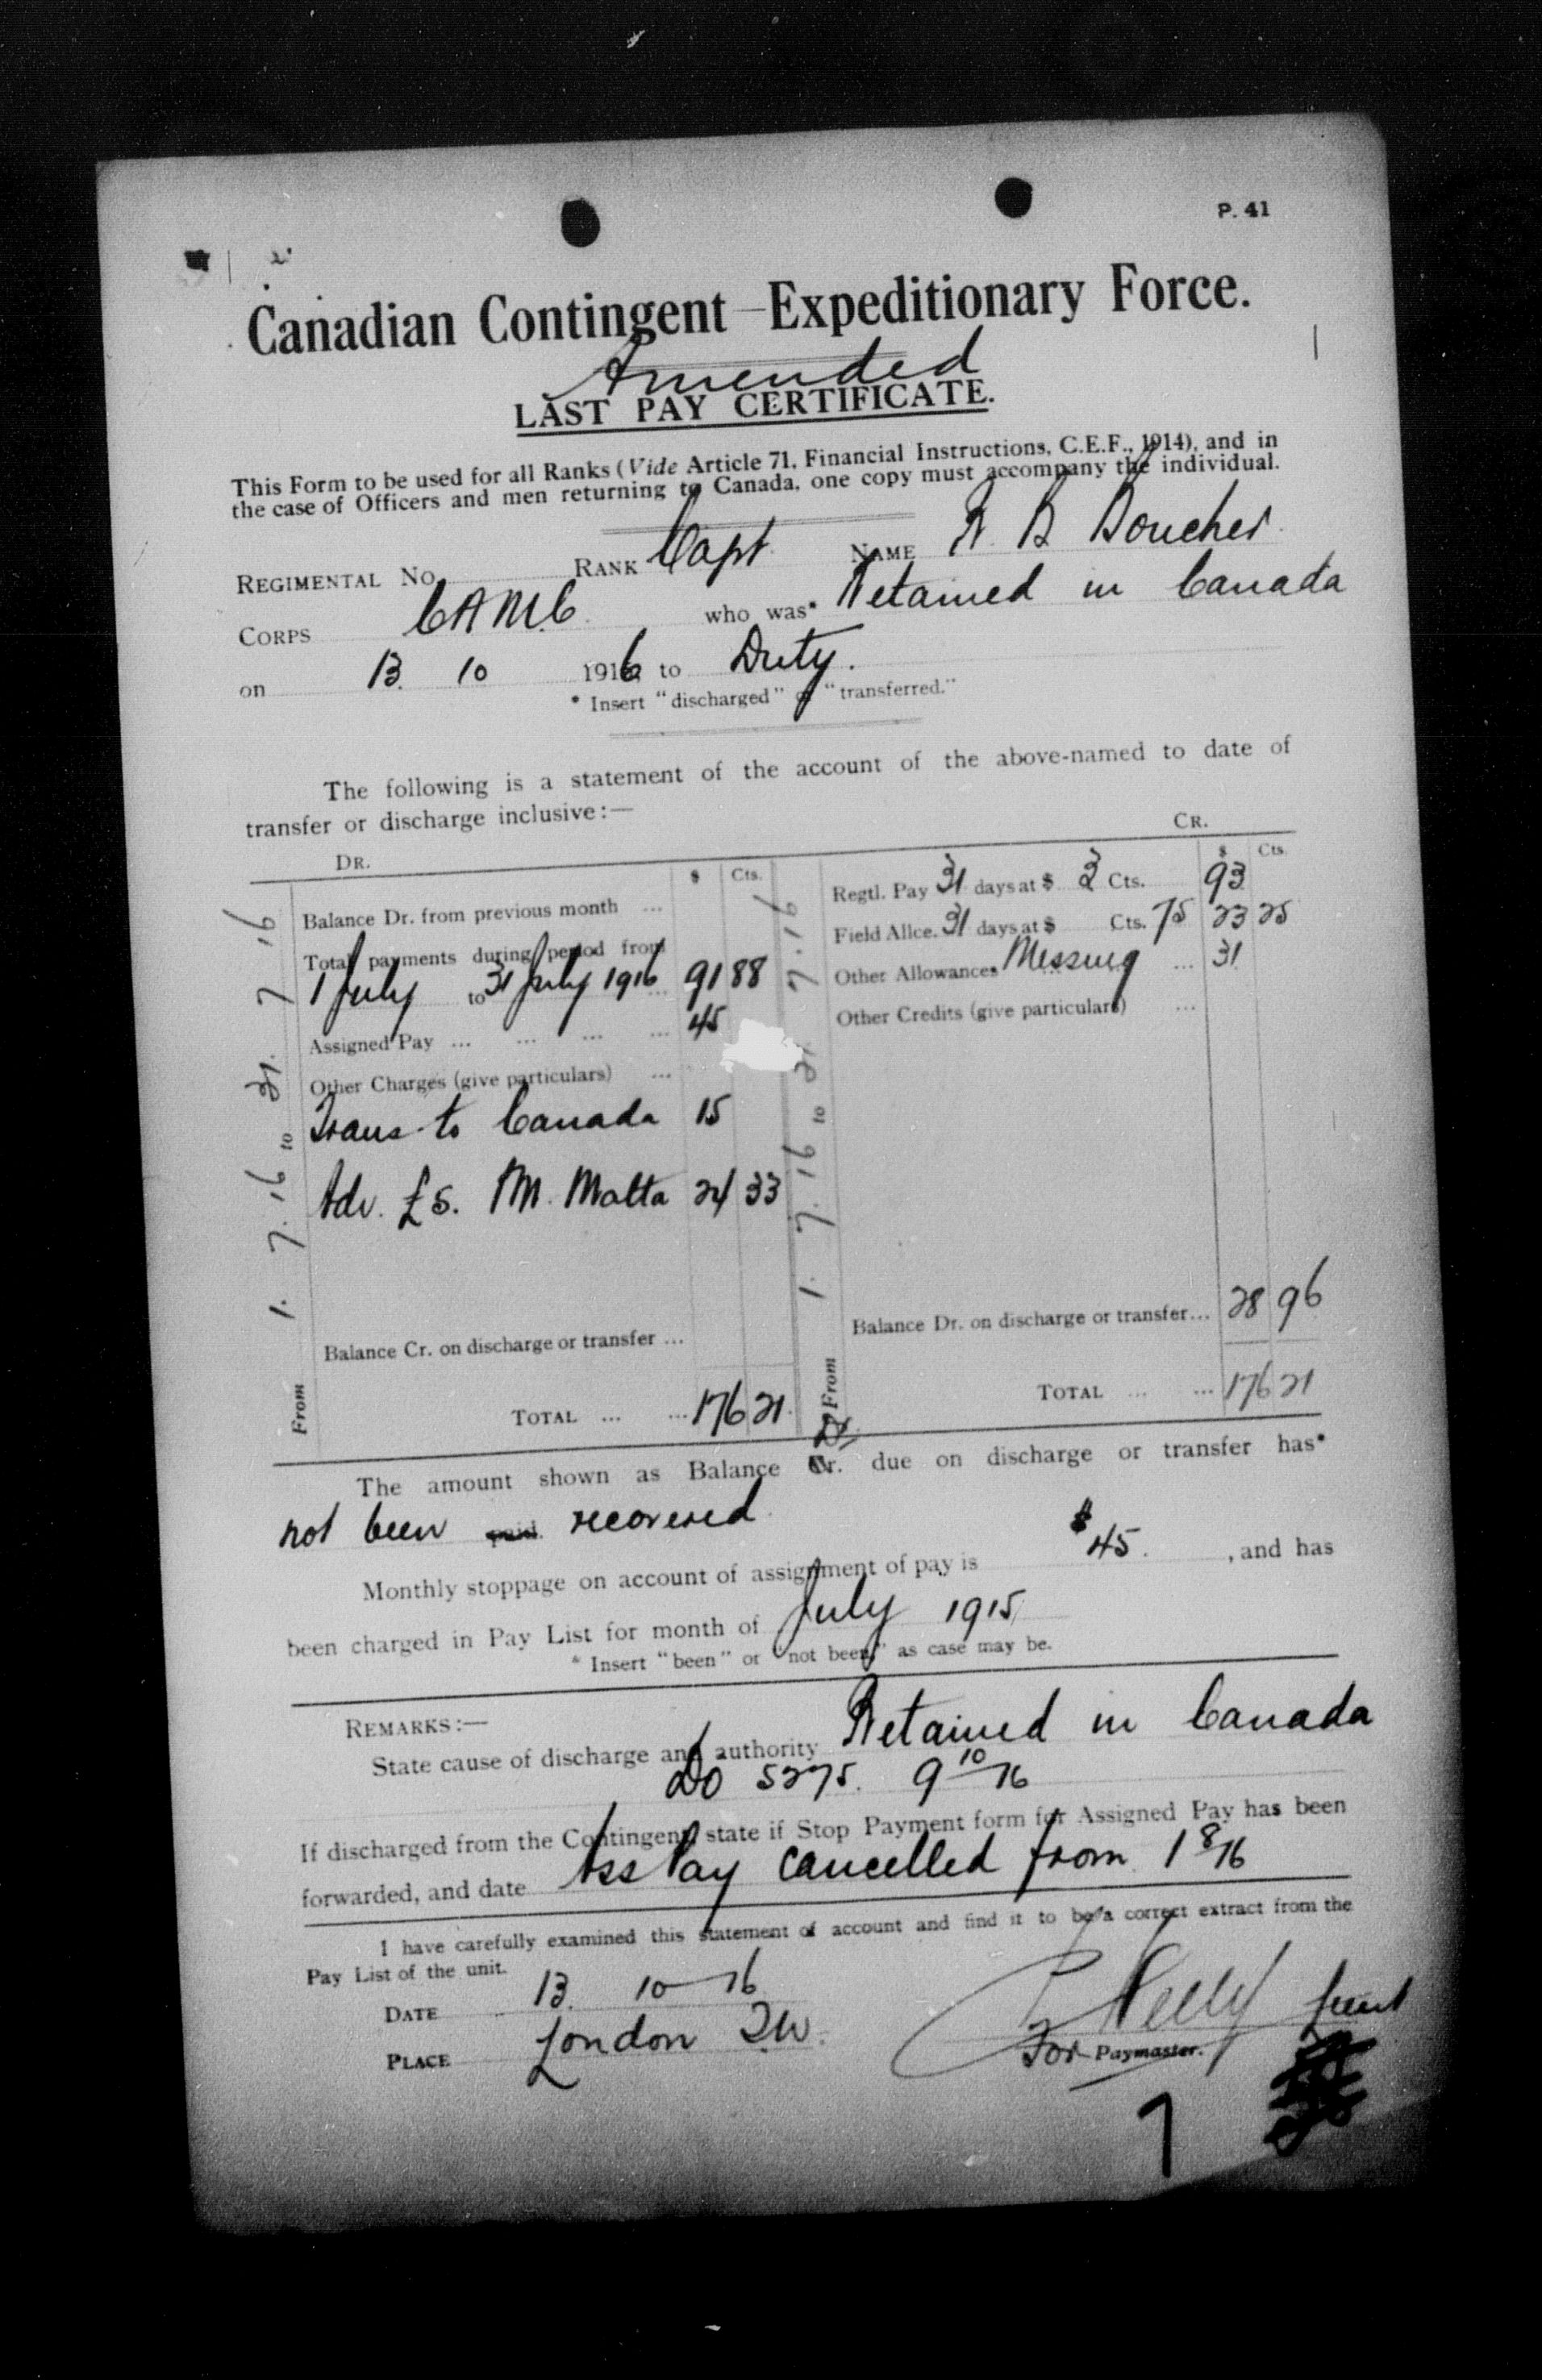 P. 41
Canadian Contingent Expeditionary Force.
Amended
LAST PAY CERTIFICATE.
This Form to be used for all Ranks (Vide Article 71, Financial Instructions, C.E.F., 1914), and in
the case of Officers and men returning to Canada, one copy must accompany the individual.
REGIMENTAL No. RANK Capt NAME R B Boucher
CORPS CAMC who was* Retained in Canada
on 13. 10 1916 to Duty.
* Insert "discharged" or "transferred."
The following is a statement of the account of the above-named to date of
transfer or discharge inclusive:—
DR.
$ Cts.
From 1. 7. 16 to 31. 7. 16
Balance Dr. from previous month ...
Total payments during period from
1 July to 31 July 1916 ... 91 88
Assigned Pay ... ... ... ... 45
Other Charges (give particulars) ...
Trans to Canada 15
Adv. £5. PM. Malta 24 33
Balance Cr. on discharge or transfer ...
TOTAL ... ... 176 21
CR.
$ Cts.
From 1. 7. 16 to 31. 7. 16
Regtl. Pay 31 days at $ 3 Cts. 93
Field Allce. 31 days at $ Cts. 75 23 25
Other Allowances Messing ... 31
Other Credits (give particulars) ...
Balance Dr. on discharge or transfer... 28 96
TOTAL ... ... 176 21
The amount shown as Balance Dr. due on discharge or transfer has*
not been paid recovered
Monthly stoppage on account of assignment of pay is $45. , and has
been charged in Pay List for month of July 1915
* Insert "been" or "not been," as case may be.
REMARKS:—
State cause of discharge and authority Retained in Canada
DO 5275. 9 10/16
If discharged from the Contingent, state if Stop Payment form for Assigned Pay has been
forwarded, and date Ass Pay cancelled from 1 8/16
I have carefully examined this statement of account and find it to be a correct extract from the
Pay List of the unit.
DATE 13. 10 16
PLACE London SW.
Kelly Lieut
For Paymaster.
7